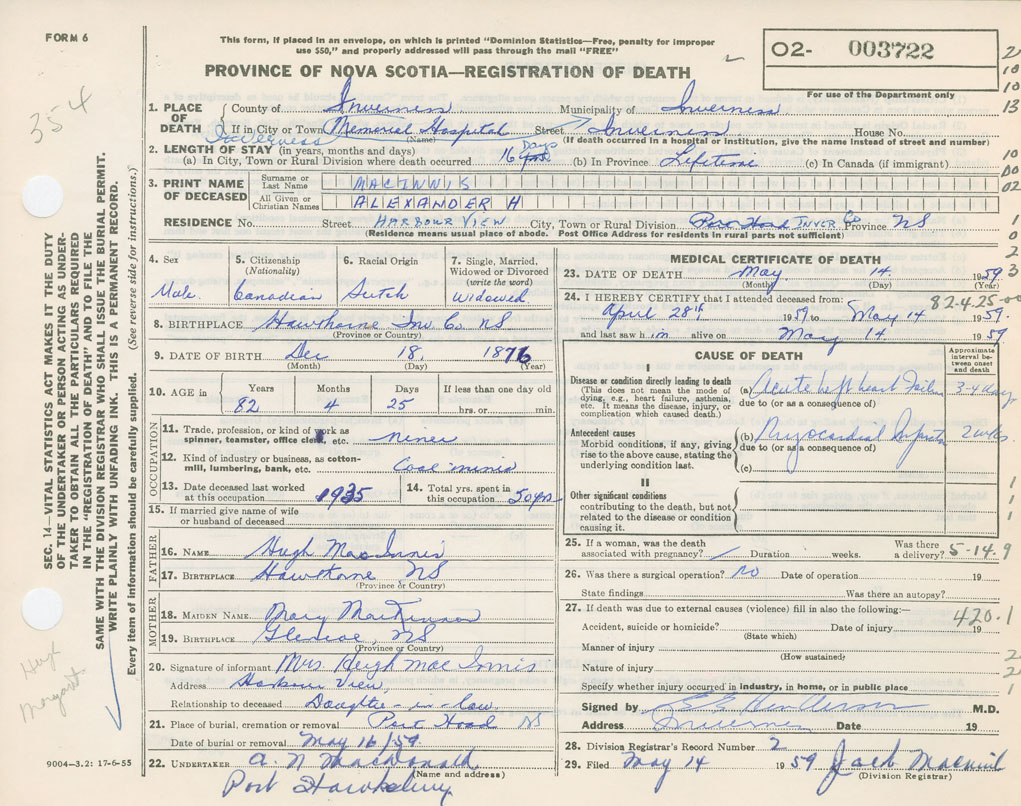 FORM 6
This form, if placed in an envelope, on which is printed "Dominion Statistics—Free, penalty for improper
use $50," and properly addressed will pass through the mail "FREE"
PROVINCE OF NOVA SCOTIA—REGISTRATION OF DEATH
O2- 003722
For use of the Department only
354
SEC. 14—VITAL STATISTICS ACT MAKES IT THE DUTY
OF THE UNDERTAKER OR PERSON ACTING AS UNDER-
TAKER TO OBTAIN ALL THE PARTICULARS REQUIRED
IN THE "REGISTRATION OF DEATH" AND TO FILE THE
SAME WITH THE DIVISION REGISTRAR WHO SHALL ISSUE THE BURIAL PERMIT.
WRITE PLAINLY WITH UNFADING INK. THIS IS A PERMANENT RECORD.
Every item of information should be carefully supplied. (See reverse side for instructions.)
Hugh
Margaret
1. PLACE OF DEATH
County of Inverness Municipality of Inverness
If in City or Town Memorial Hospital Street Inverness House No.
Inverness
(Name) (If death occurred in a hospital or Institution, give the name instead of street and number)
2. LENGTH OF STAY (in years, months and days)
(a) In City, Town or Rural Division where death occurred 16 days (b) In Province Lifetime (c) In Canada (if immigrant)
3. PRINT NAME OF DECEASED
Surname or Last Name MACINNIS
All Given or Christian Names ALEXANDER H
RESIDENCE No. Street HARBOUR VIEW City, Town or Rural Division Port Hood INVER Co Province NS
(Residence means usual place of abode. Post Office Address for residents in rural parts not sufficient)
4. Sex Male
5. Citizenship (Nationality) Canadian
6. Racial Origin Dutch
7. Single, Married, Widowed or Divorced (write the word) Widowed
8. BIRTHPLACE Hawthorne Inv Co. NS
(Province or Country)
9. DATE OF BIRTH Dec 18, 1876
(Month) (Day) (Year)
10. AGE in Years 82 Months 4 Days 25 If less than one day old hrs. or min.
OCCUPATION
11. Trade, profession, or kind of work as
spinner, teamster, office clerk, etc. miner
12. Kind of industry or business, as cotton-
mill, lumbering, bank, etc. Coal mines
13. Date deceased last worked
at this occupation 1935
14. Total yrs. spent in
this occupation 50 yrs
15. If married give name of wife
or husband of deceased
FATHER
16. NAME Hugh MacInnis
17. BIRTHPLACE Hawthorne NS
(Province or Country)
MOTHER
18. MAIDEN NAME Mary MacKinnon
19. BIRTHPLACE Glencoe, NS
(Province or Country)
20. Signature of informant Mrs Heigh mac Innis
Address Harbour View,
Relationship to deceased Daughter-in-law
21. Place of burial, cremation or removal Port Hood NS
Date of burial or removal May 16/59
22. UNDERTAKER A. N MacDonald
(Name and address)
Port Hawkesbury
9004-3.2: 17-6-55
MEDICAL CERTIFICATE OF DEATH
23. DATE OF DEATH May 14 1959
(Month) (Day) (Year)
82-4-25-00
24. I HEREBY CERTIFY that I attended deceased from:
April 28th 1959 to May 14 1959.
and last saw him alive on May 14 1959
CAUSE OF DEATH
Approximate interval between onset and death
I
Disease or condition directly leading to death
(This does not mean the mode of
dying, e.g., heart failure, asthenia,
etc. It means the disease, injury, or
complication which caused death.)
(a) Acute left heart Failure 3-4 days
due to (or as a consequence of)
Antecedent causes
Morbid conditions, if any, giving
rise to the above cause, stating the
underlying condition last.
(b) Myocardial Infarction 2 wks
due to (or as a consequence of)
(c)
II
Other significant conditions
contributing to the death, but not
related to the disease or condition
causing it.
25. If a woman, was the death
associated with pregnancy? Duration weeks. Was there a delivery?
5-14.9
26. Was there a surgical operation? no Date of operation 19
State findings Was there an autopsy?
27. If death was due to external causes (violence) fill in also the following:—
420.1
Accident, suicide or homicide? Date of injury 19
(State which)
Manner of injury
(How sustained)
Nature of injury
Specify whether injury occurred in industry, in home, or in public place
Signed by M.D.
Address Inverness Date 19
28. Division Registrar's Record Number 2
29. Filed May 14 1959
(Division Registrar)